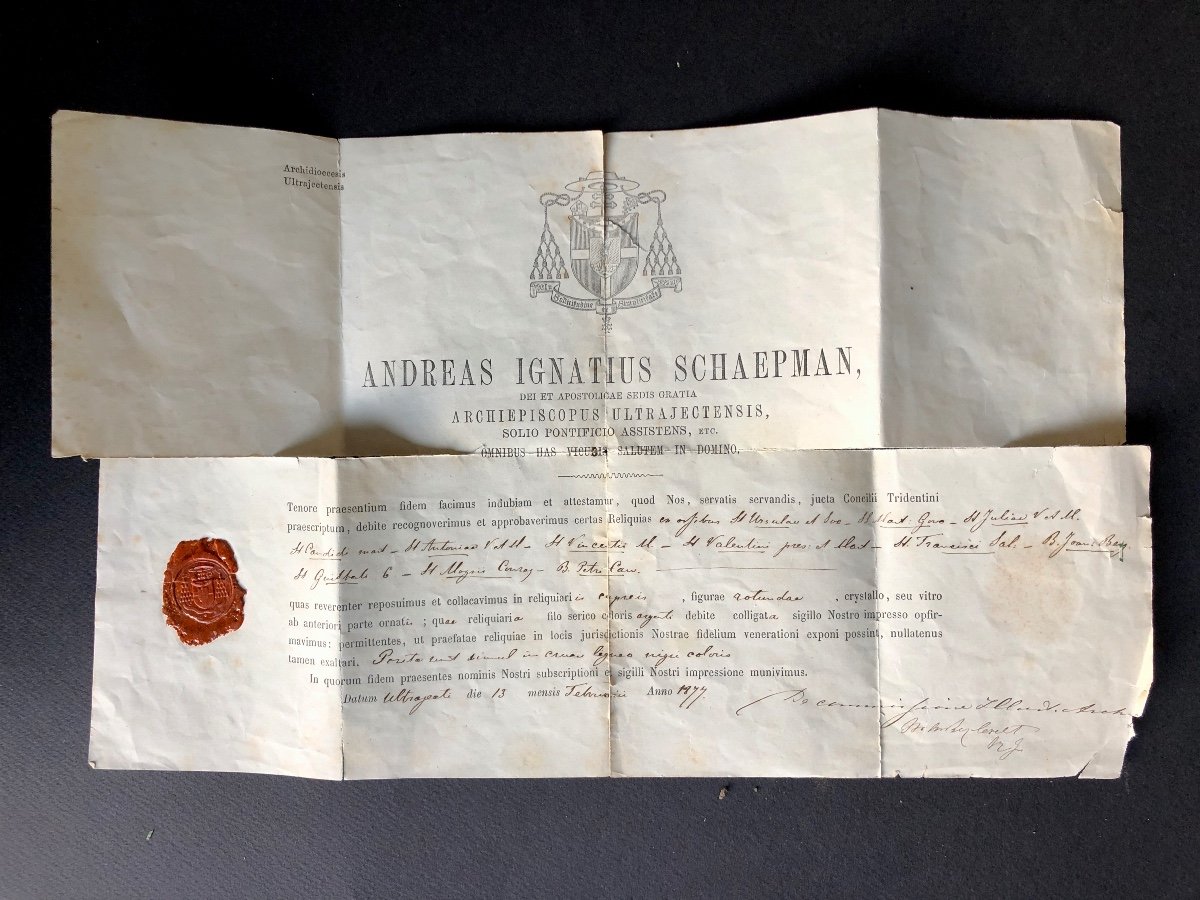 Archidioecesis
Ultrajectensis
ANDREAS IGNATIUS SCHAEPMAN,
DEI ET APOSTOLICAE SEDIS GRATIA
ARCHIEPISCOPUS ULTRAJECTENSIS,
SOLIO PONTIFICIO ASSISTENS, ETC.
OMNIBUS HAS VISURIS SALUTEM IN DOMINO.
Tenore praesentium fidem facimus indubiam et attestamur, quod Nos, servatis servandis, jucta Concilii Tridentini
praescriptum, debite recognoverimus et approbaverimus certas Reliquias ex ossibus St Ursulae et Soc – St Mart. Gorc – St Juliae V et M.
St Candidi mart – St Antoniae V et M – St Vincentii M – St Valentini pres: et Mart – St Francisci Sal: – B. Joan:
St – St – B. Petri Can.
quas reverenter reposuimus et collacavimus in reliquiariis cupreis, figurae rotundae, crystallo, seu vitro
ab anteriori parte ornatis; quae reliquiaria filo serico coloris debite colligata sigillo Nostro impresso opfir-
mavimus: permittentes, ut praefatae reliquiae in locis jurisdictionis Nostrae fidelium venerationi exponi possint, nullatenus
tamen exaltari. Posita sunt simul in cruce lignea nigri coloris
In quorum fidem praesentes nominis Nostri subscriptioni et sigilli Nostri impressione munivimus.
Datum Ultrajecti die 13 mensis Februarii Anno 1877.
De commissione